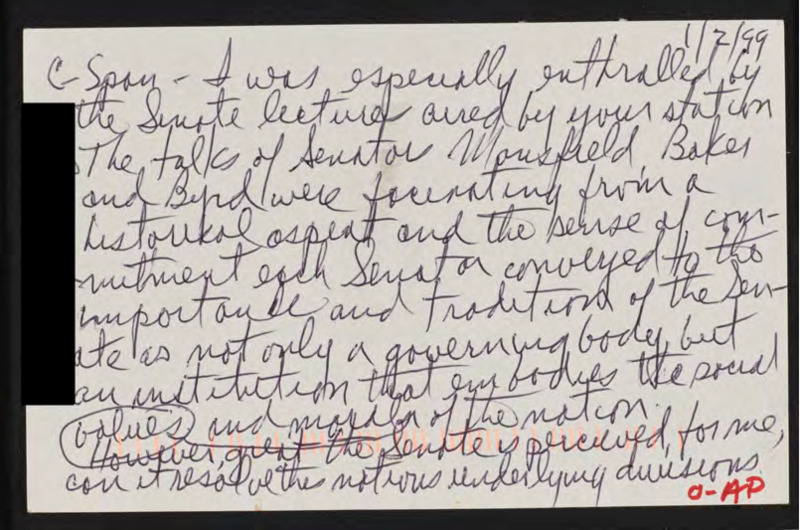 1/2/99
C-Span - I was especially enthralled by
the Senate lectures aired by your station
The talks of Senator Mansfield, Baker
and Byrd were facinating from a
historical aspect and the sense of com-
mitment each Senator conveyed to the
importance and tradition of the Sen-
ate as not only a governing body, but
an institution that embodies the social
values and morals of the nation.
However, great the Senate is perceived, for me,
can it resolve the nations underlying divisions.
O-AP